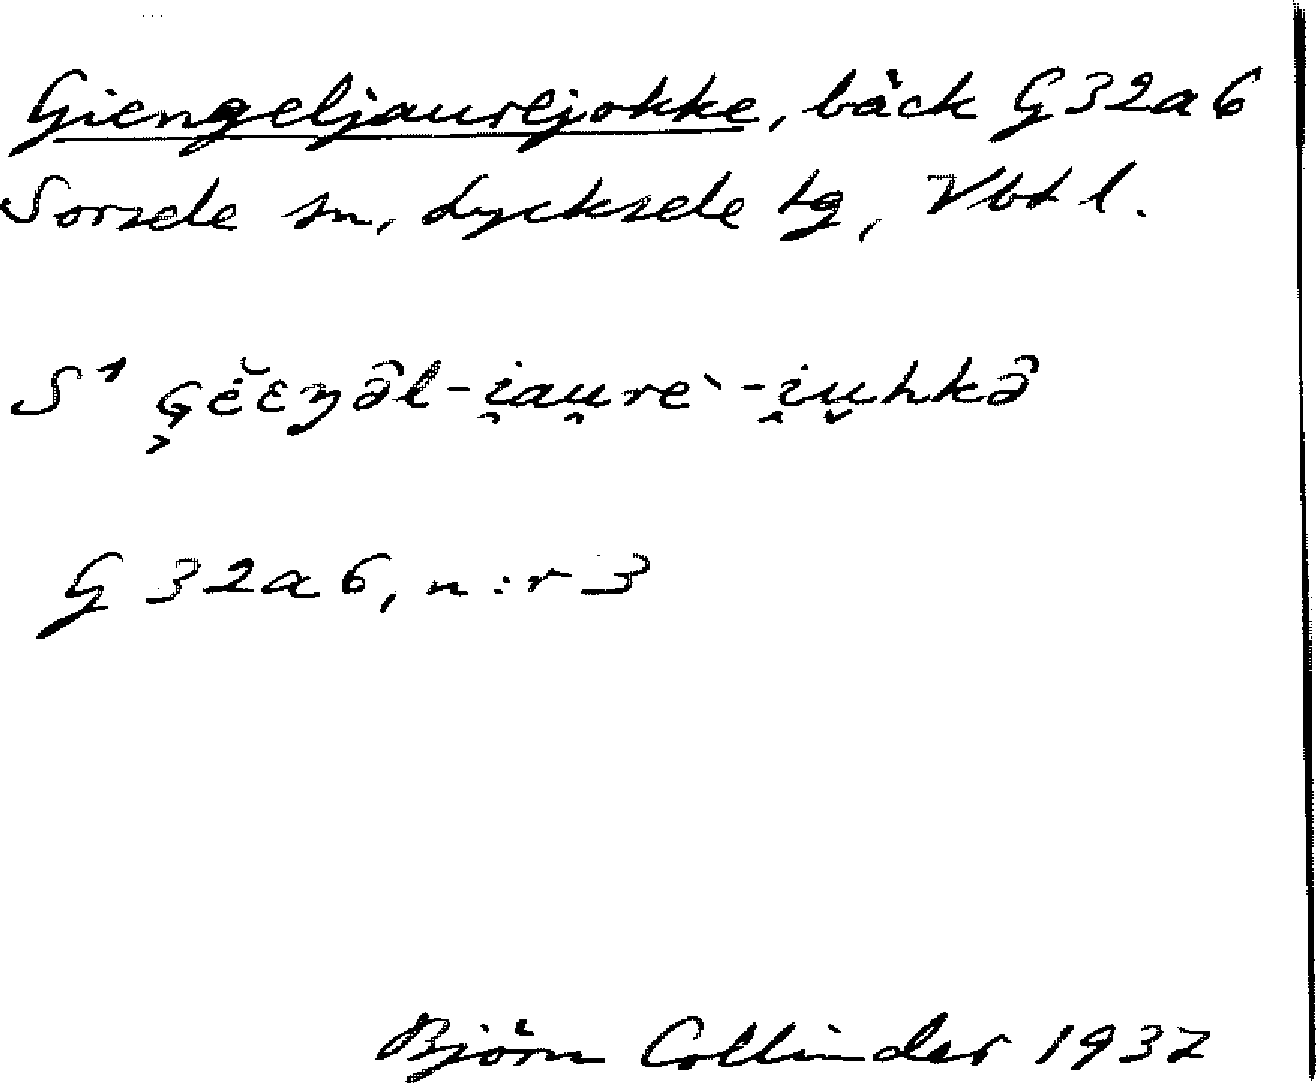 Giengeljaurejokke, bäck G32a6
Sorsele sn, Lycksele tg, Vbtl.
S¹ G̜ĕ́ɛŋə̑l-i̯au̯re`-i̯u̬hkə̑
G 32a6, n:r 3
Björn Collinder 1937